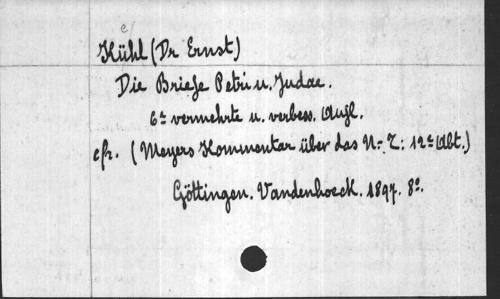 Kühl (Dr Ernst)
Die Briefe Petri u. Judae.
6= vermehrte u. verbess. Aufl.
cfr. (Meyers Kommentar über das N.-T: 12= Abt.)
Göttingen. Vandenhoeck. 1897. 8º.